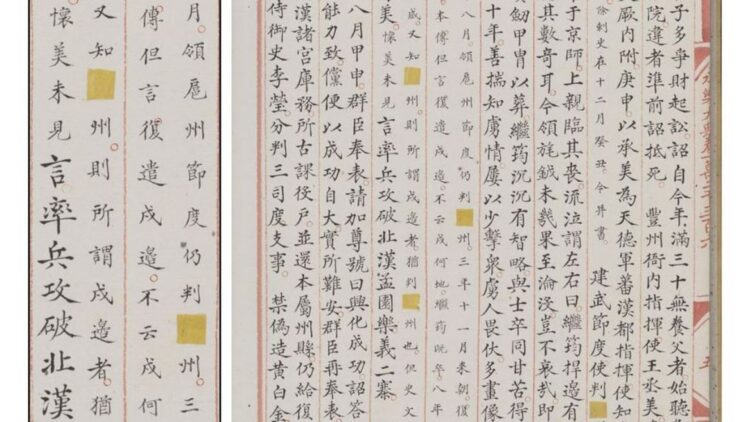 子多爭財起訟詔自今年滿三十無養父者始聽
院違者準前詔抵死。 豐州衙内指揮使王丞美
厥内附庚申以承美為天德軍蕃漢都指揮使知
徐刺史在十二月癸丑。今并書。 建武節度使判
于京師。上親臨其喪。流泣謂左右曰。繼筠捍邉有
其數奇耳。今領旄鉞未幾果至淪没豈不哀哉。即
劔甲冑以葬。繼筠沉沉有智略與士卒同甘苦得
十年善揣知虜情屢以少擊衆虜人畏伏多畫像
八月。領扈州節度仍判 州。三年十一月來朝。復
本傳但言復遣戍邉。不云戍何地。繼筠既卒。八年
成。又知 州則所謂戍邉者猶判 州也。但史文
美懷美未見 言率兵攻破北漢盂園樂義二寨
八月甲申。群臣奉表。請加尊號曰興化成功詔答
能力致。儻便以成功自大。實所難安。群臣再奉表
漢諸宫庫務所占課役户。並還本屬州縣仍給復
侍御史李瑩分判三司度支事。 禁偽造黄白金
月。領扈州節度仍判 州。三
傳但言復遣戍邉。不云戍何
又知 州。則所謂戍邉者。猶
懷美未見 言率兵攻破北漢